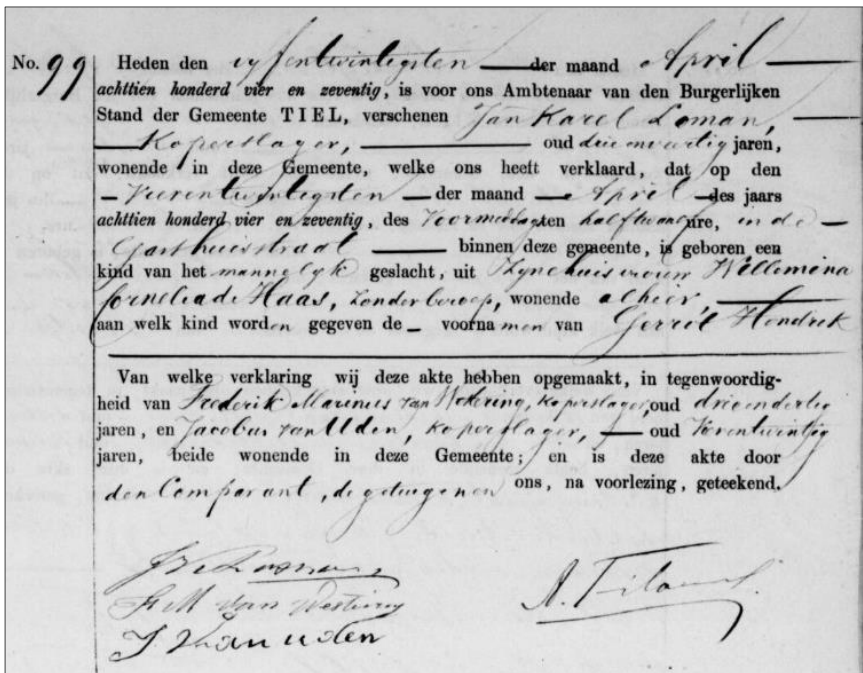 No. 99 Heden den vyfentwintigsten der maand April
achttien honderd vier en zeventig, is voor ons Ambtenaar van den Burgerlijken
Stand der Gemeente TIEL, verschenen Jan Karel Loman,
Koperslager, oud drieenveertig jaren,
wonende in deze Gemeente, welke ons heeft verklaard, dat op den
Vierentwintigsten der maand April des jaars
achttien honderd vier en zeventig, des Voormiddagten half twaalf ure, in de
Gasthuisstraat binnen deze gemeente, is geboren een
kind van het mannelyk geslacht, uit Zyne huisvrouw Willemina
Cornelia de Haas, Zonder beroep, wonende alhier,
aan welk kind worden gegeven de voornamen van Gerrit Hendrik
Van welke verklaring wij deze akte hebben opgemaakt, in tegenwoordig-
heid van Frederik Marinus van Wetering, Koperslager, oud drieendertig
jaren, en Jacobus van Uden, Koperslager, oud Vierentwintig
jaren, beide wonende in deze Gemeente; en is deze akte door
den Comparant, de getuigen en ons, na voorlezing, geteekend.
F. M. van Wetering
J. van uden